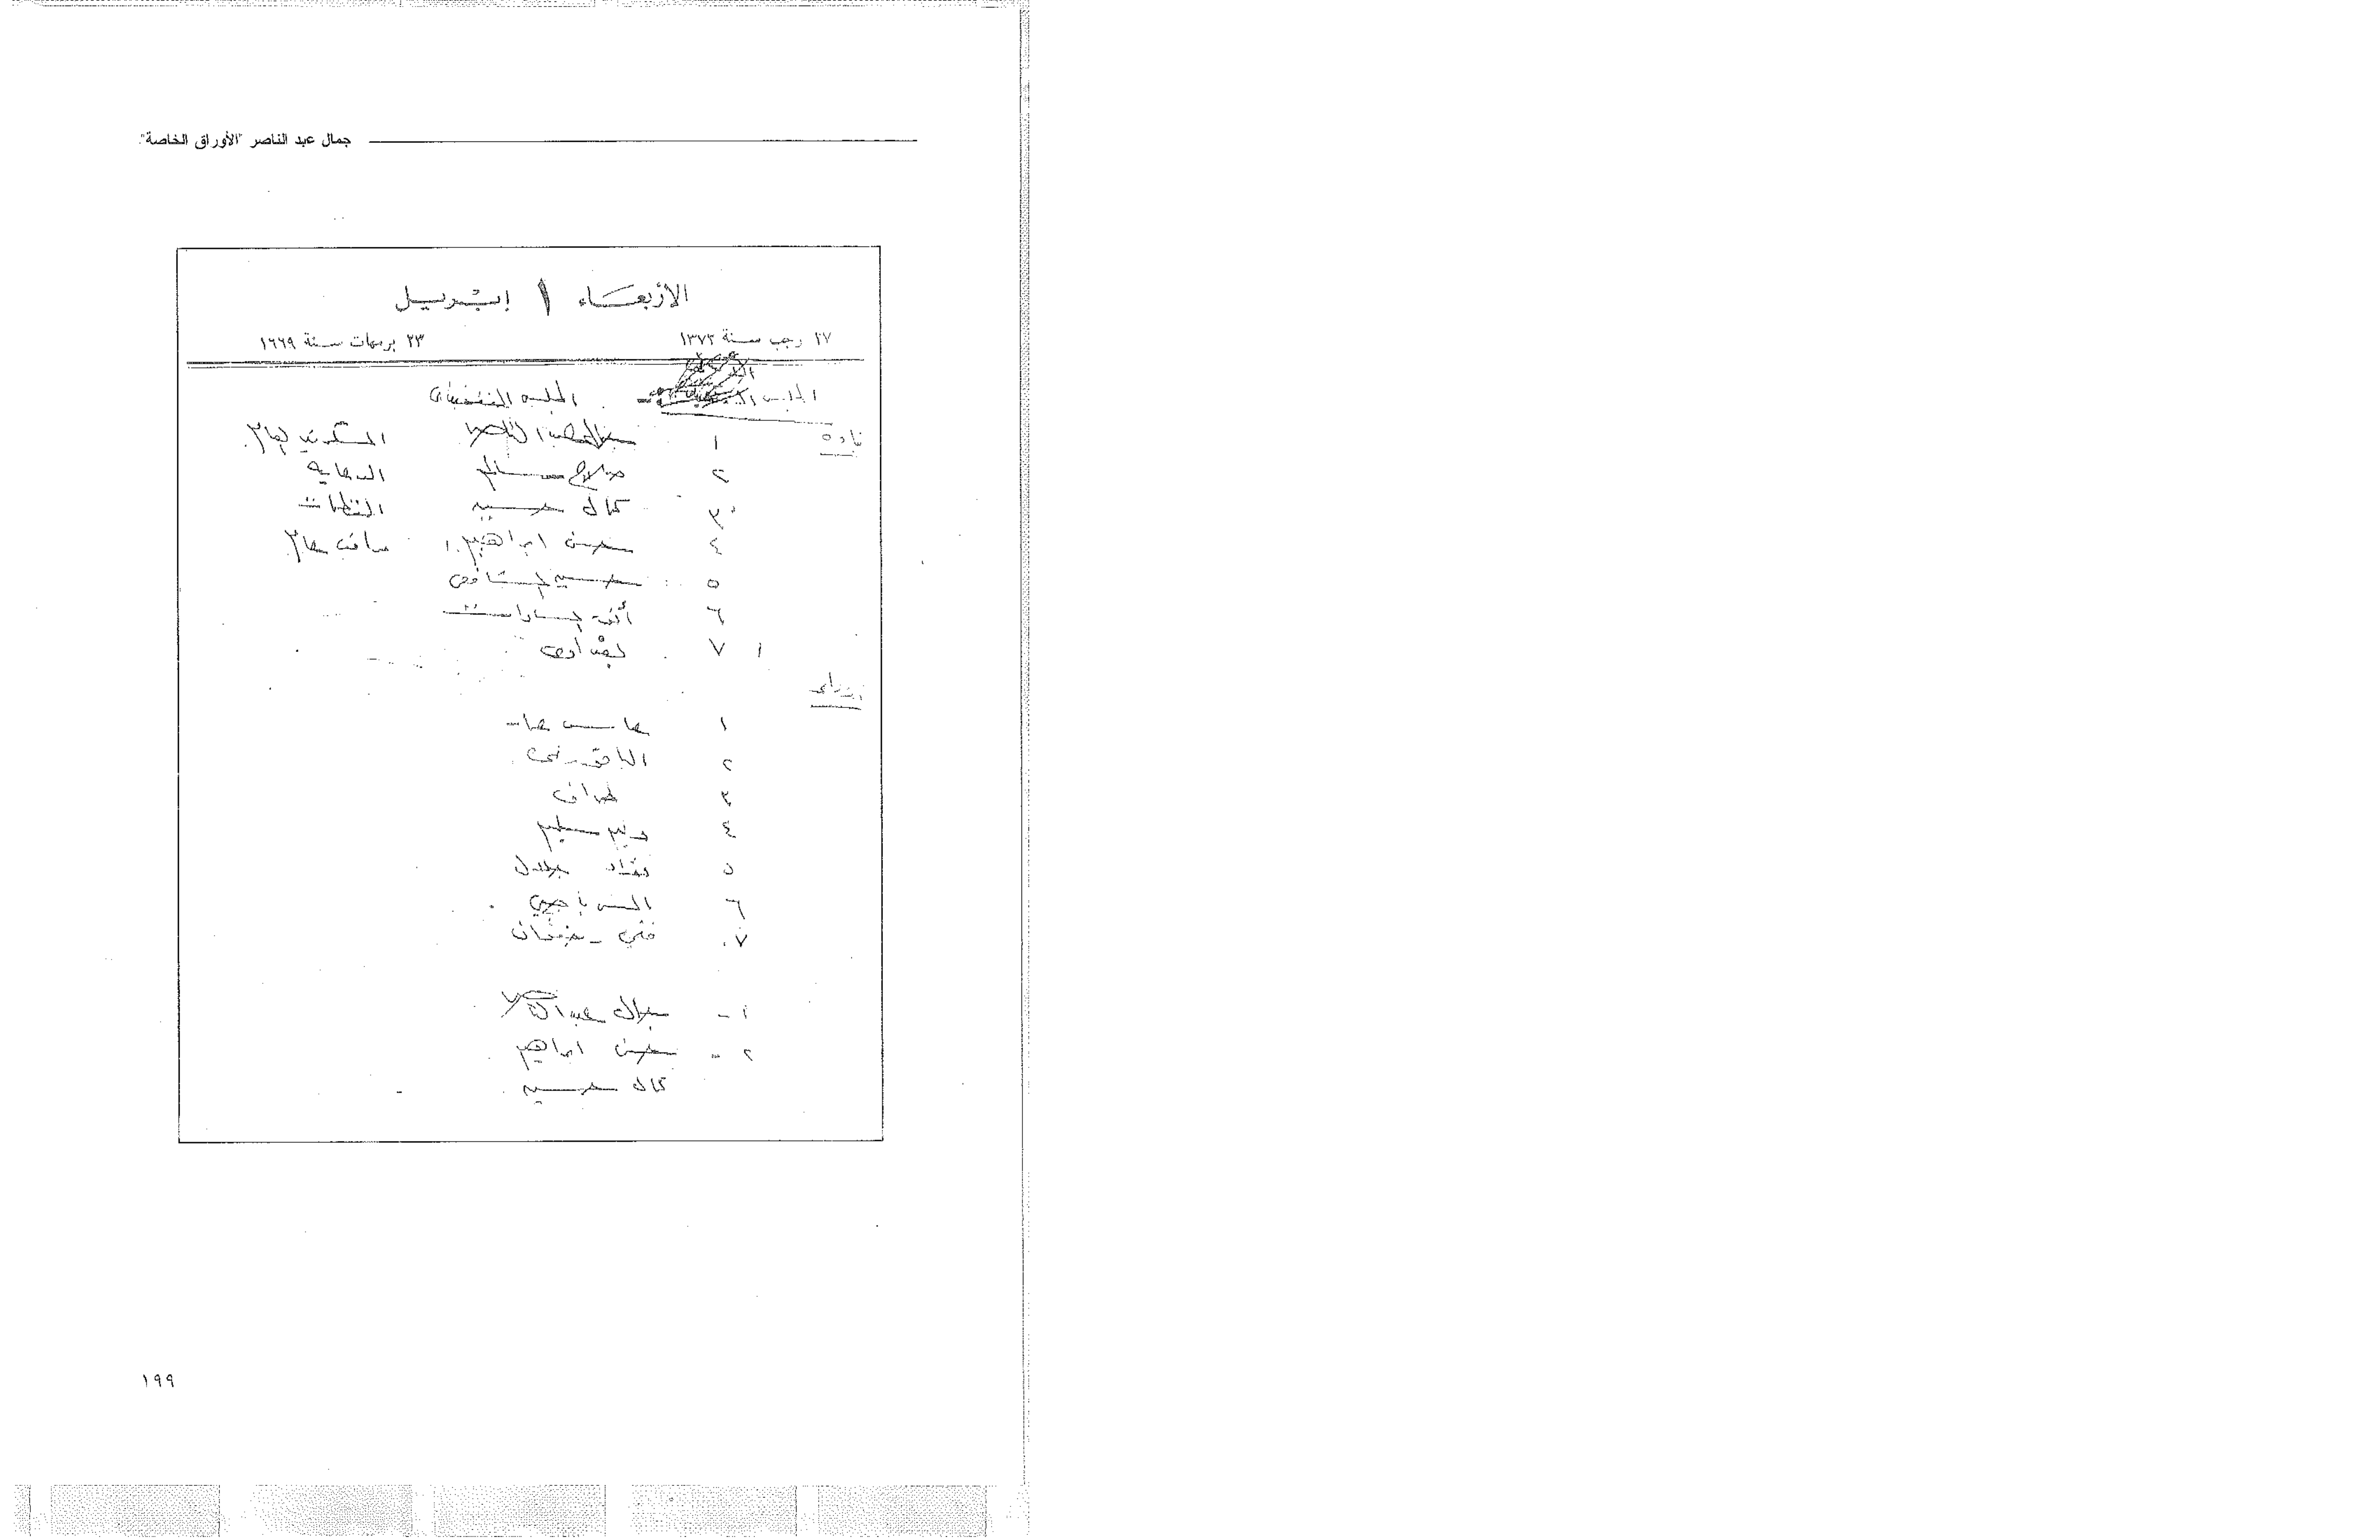 جمال عبد الناصر "الأوراق الخاصة"
الأربعاء ١ إبريل
١٧ رجب سنة ١٣٧٢ ٢٣ برمهات سنة ١٦٦٩
المجلس التنفيذي
١ جمال عبد الناصر السكرتير العام
٢ صلاح سالم الدعاية
٣ كمال حسين المنظمات
٤ حسن ابراهيم مراقب عام
٥ حسين الشافعى
٦ أنور السادات
٧ بغدادى
١
٢ الباقورى
٣
٤ وليم سليم
٥ فؤاد جلال
٦
٧ فتحى رضوان
١ - جمال عبد الناصر
٢ - حسن ابراهيم
كمال حسين
١٩٩